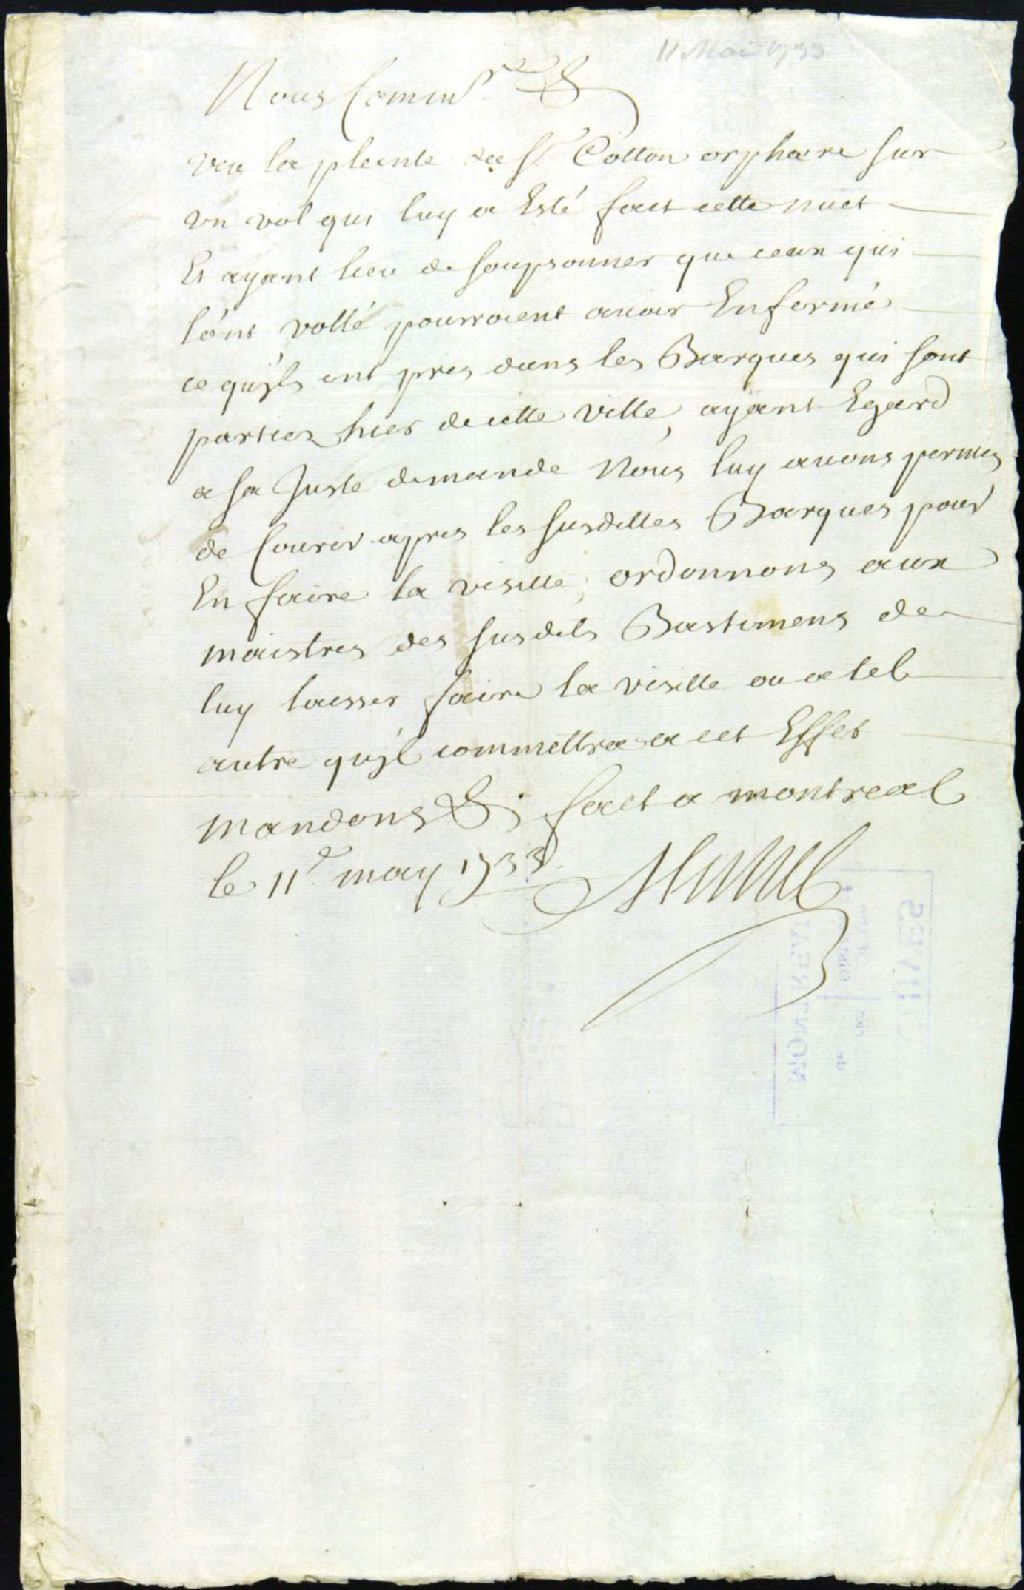 11 Mai 1733
Nous Commre &
veu la plainte du Sr Cotton orphevre sur
un vol qui luy a Esté fait cette nuit
Et ayant lieu de soupsonner que ceux qui
lónt vollé pourroient avoir Enfermé
ce quÿls ont pris dans les Barques qui sont
parties hier de cette ville, ayant Egard
a sa Juste demande Nous luy avons permis
de Courir apres les susdittes Barques pour
En faire la visitte, ordonnons aux
maistres des susdits Bastimens de
luy laisser faire la visitte ou a tel
autre quÿl commettra a cet Effet
mandons &; fait a montreal
le 11e may 1733
MONTREAL